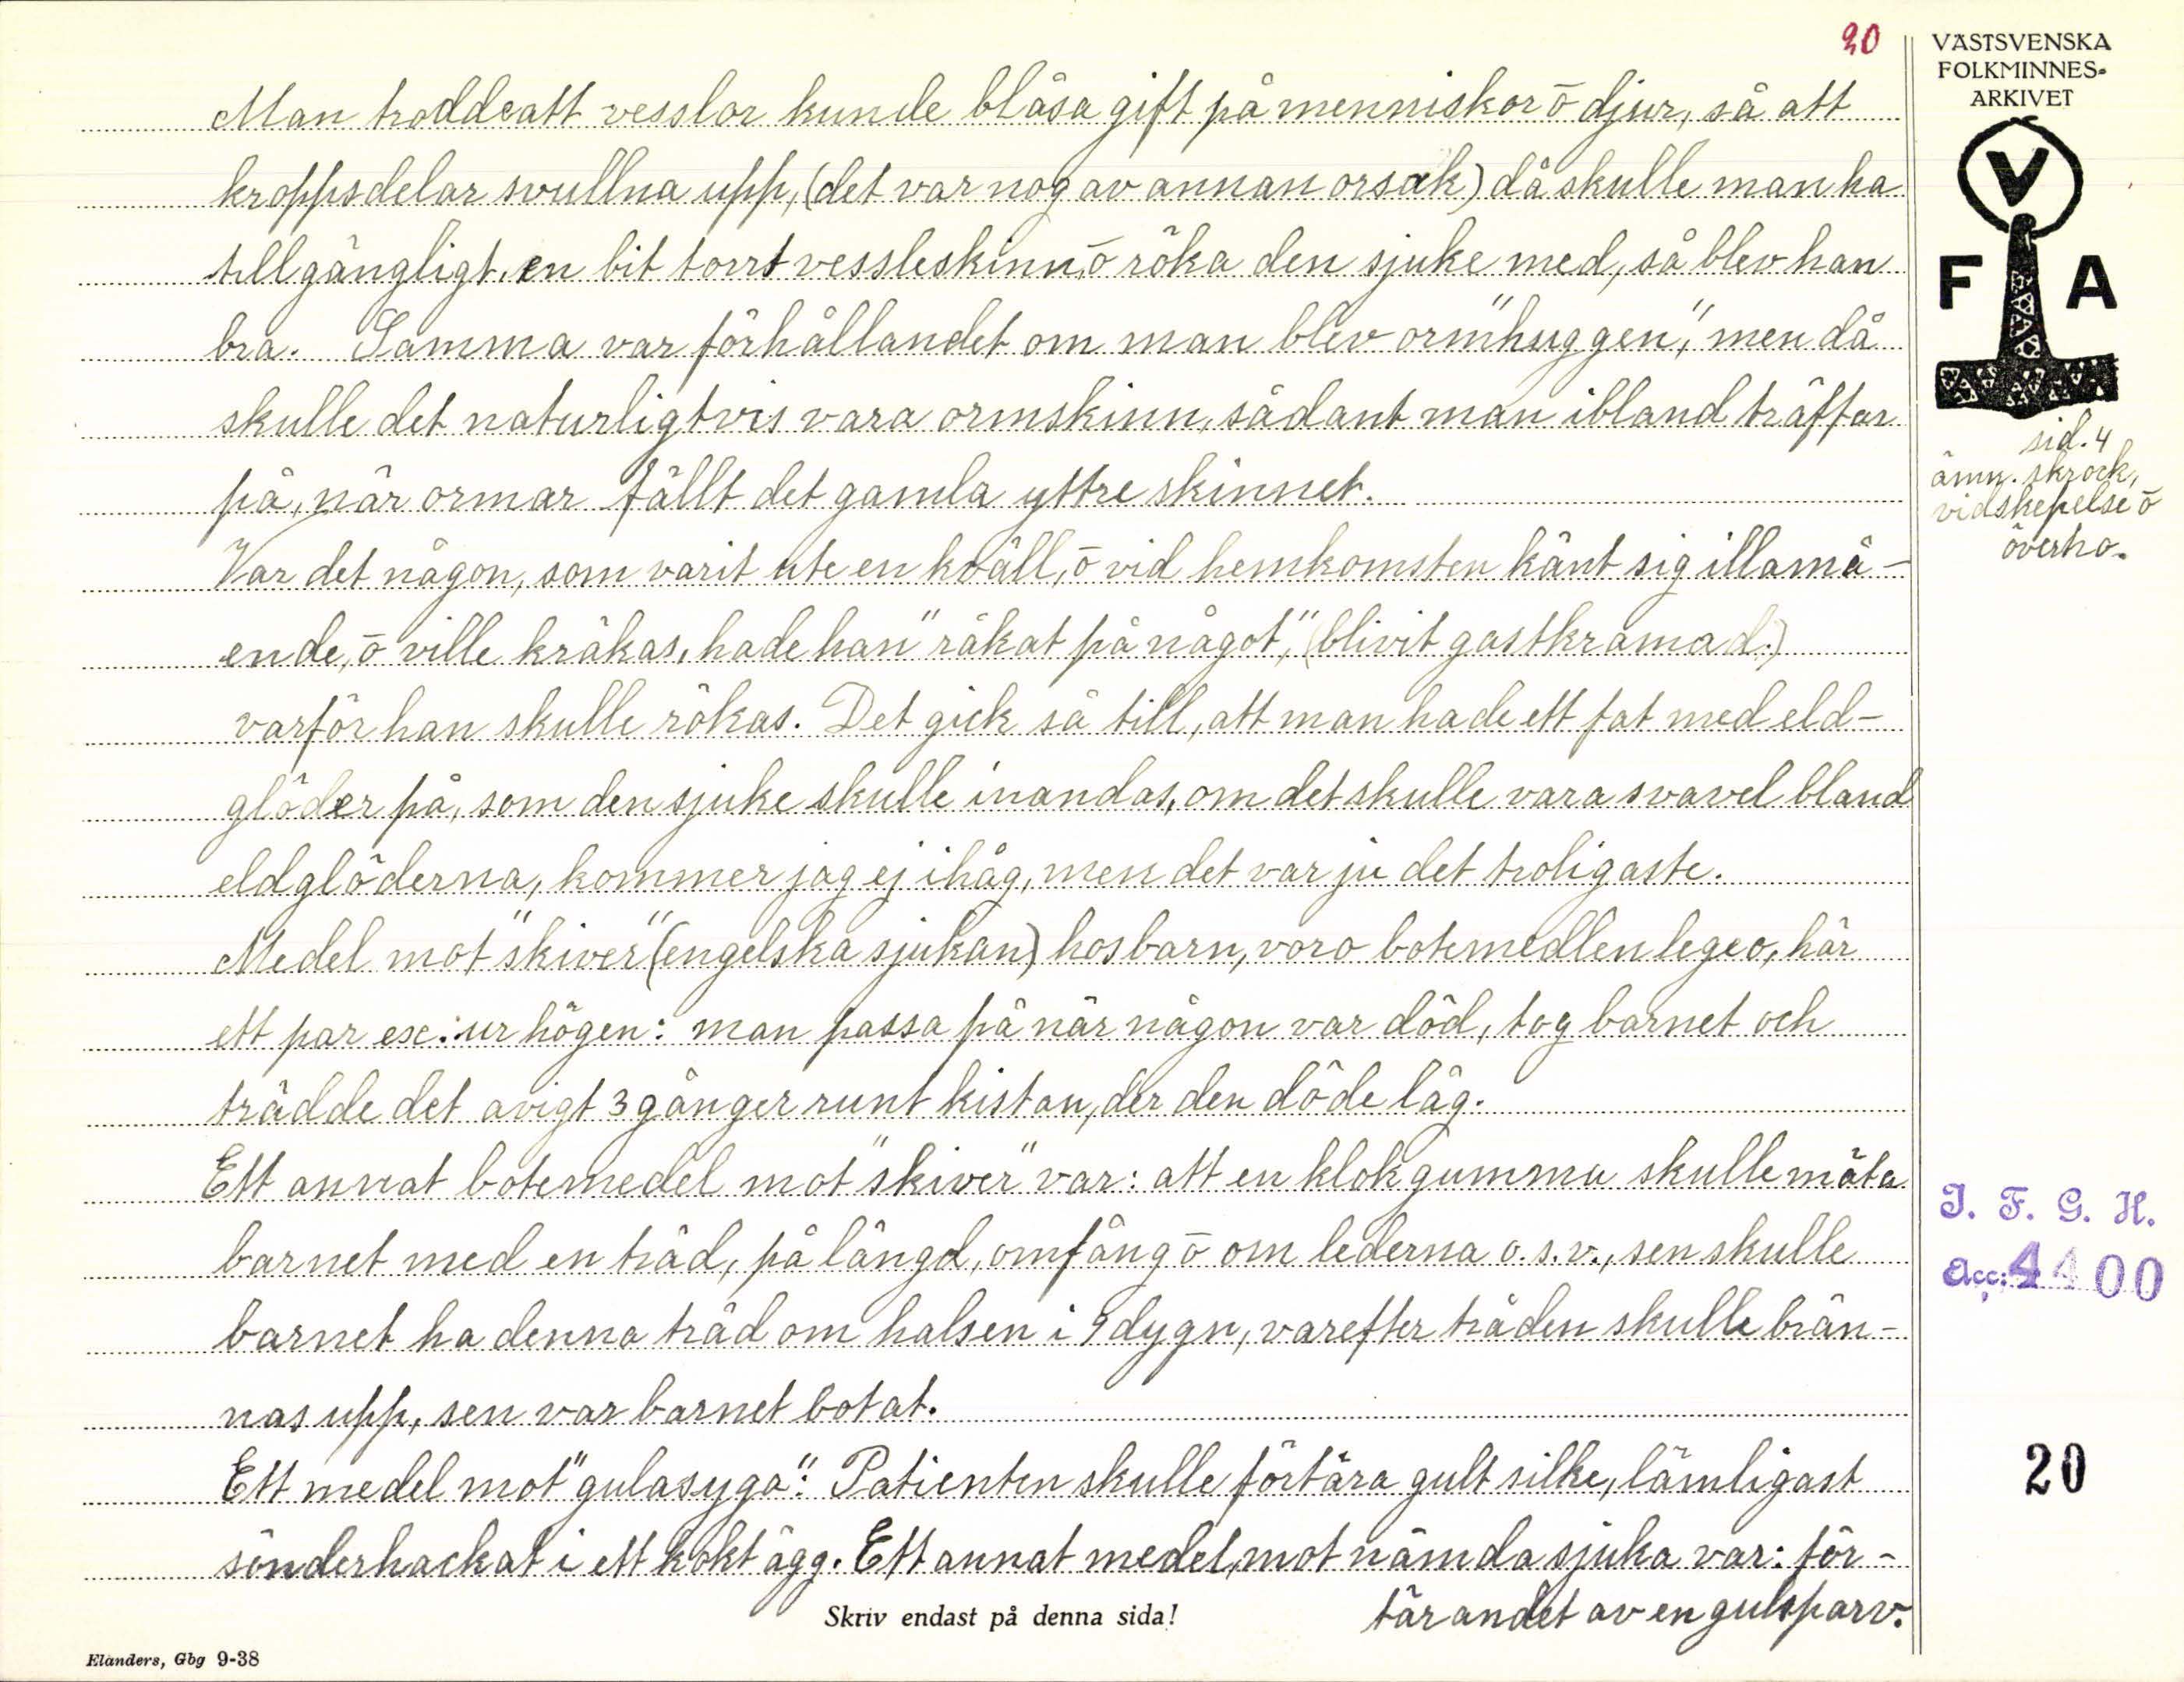 20
VÄSTSVENSKA
FOLKMINNES-
ARKIVET
V
F A
sid. 4
ämn. skrock,
vidskepelse ō
övertro.
Man trodde att vesslor kunde blåsa gift på menniskor ō djur, så att
kroppsdelar svullna upp, (det var nog av annan orsak) då skulle man ha
tillgängligt, en bit torrt vessleskinn, ō röka den sjuke med, så blev han
bra. Samma var förhållandet om man blev orm"huggen", men då
skulle det naturligtvis vara ormskinn, sådant man ibland träffar
på, när ormar fällt det gamla yttre skinnet.
Var det någon, som varit ute en kväll, ō vid hemkomsten känt sig illamå-
ende, ō ville kräkas, hade han "råkat på något", (blivit gastkramad.)
varför han skulle rökas. Det gick så till, att man hade ett fat med eld-
glöder på, som den sjuke skulle inandas, om det skulle vara svavel bland
eldglöderna, kommer jag ej ihåg, men det var ju det troligaste.
Medel mot "skiver" (engelska sjukan) hos barn, voro botemedlen legeo, här
ett par ex: ur högen: man passa på när någon var död, tog barnet och
trädde det avigt 3 gånger runt kistan, der den döde låg.
Ett annat botemedel mot "skiver" var: att en klok gumma skulle mäta
barnet med en tråd, på längd, omfång ō om lederna o.s.v., sen skulle
barnet ha denna tråd om halsen i 9 dygn, varefter tråden skulle brän-
nas upp, sen var barnet botat.
Ett medel mot "gulasyga": Patienten skulle förtära gult silke, lämligast
sönderhackat i ett kokt ägg. Ett annat medel, mot nämda sjuka var: för-
tärandet av en gulsparv.
J. F. G. H.
Acc: 4400
20
Skriv endast på denna sida!
Elanders, Gbg 9-38